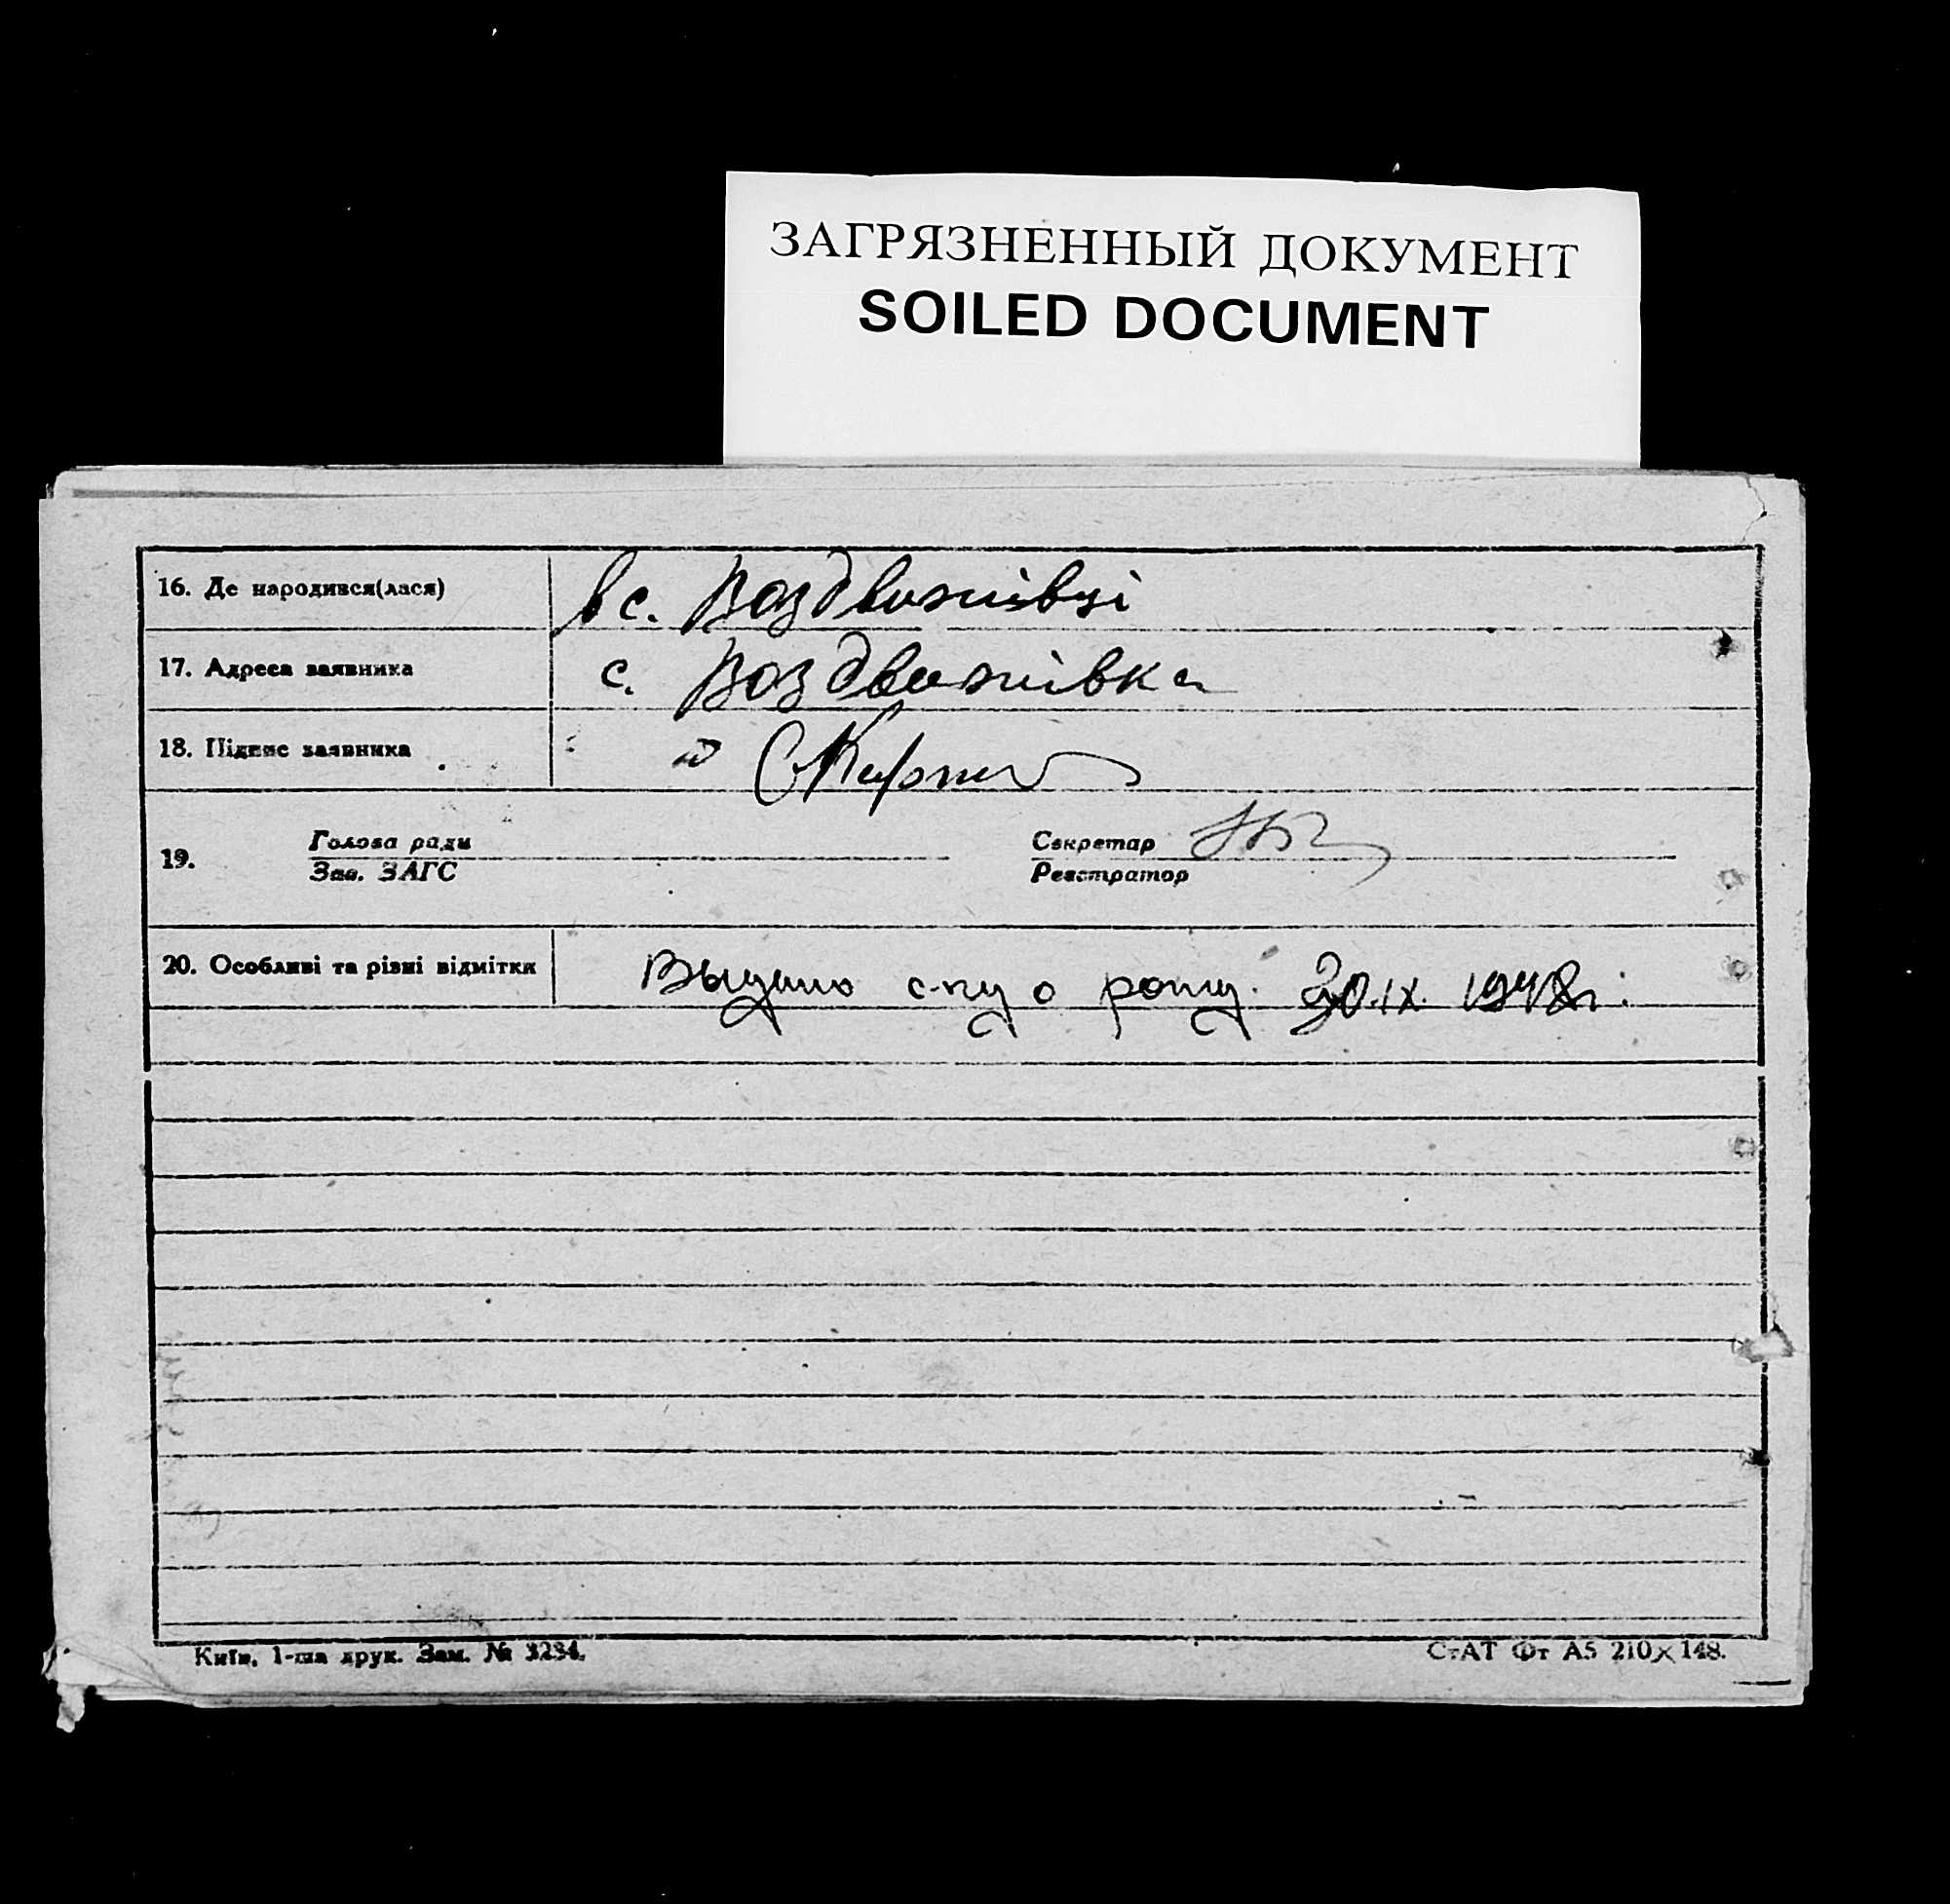 ЗАГРЯЗНЕННЫЙ ДОКУМЕНТ
SOILED DOCUMENT
16. Де народився(лася)
в с. Воздвижівці
17. Адреса заявника
с. Воздвижівка
18. Підпис заявника
19.
Голова ради
Зав. ЗАГС
Секретар
Реєстратор
20. Особливі та різні відмітки
Выдано с-ку о рожд. 30.IX. 1948г.
Київ, 1-ша друк. Зам. № 3234.
СтАТ Фт А5 210×148.